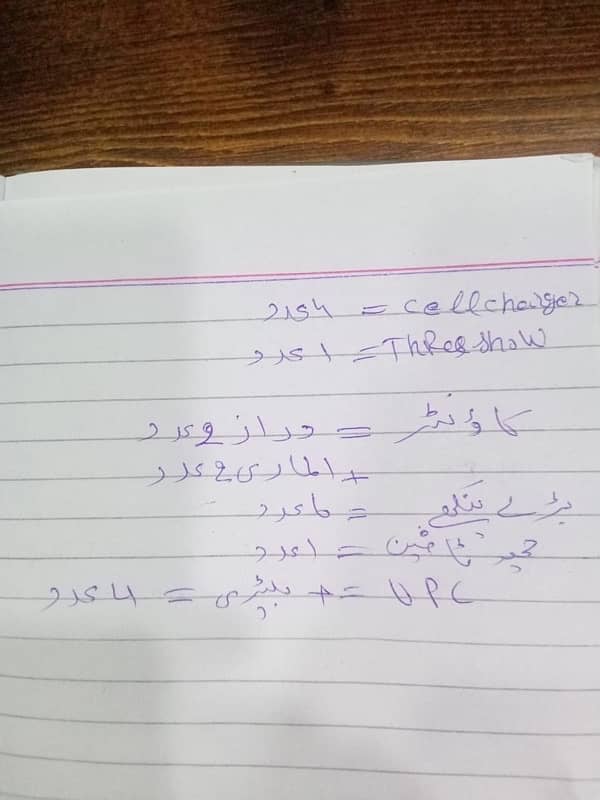 cell charger = 4 عدد
Three Show = 1 عدد
کاؤنٹر = دراز 9 عدد
+ الماری 9 عدد
بڑے پنکھے = 6 عدد
فین = 1 عدد
UPC =+ بیٹری = 4 عدد